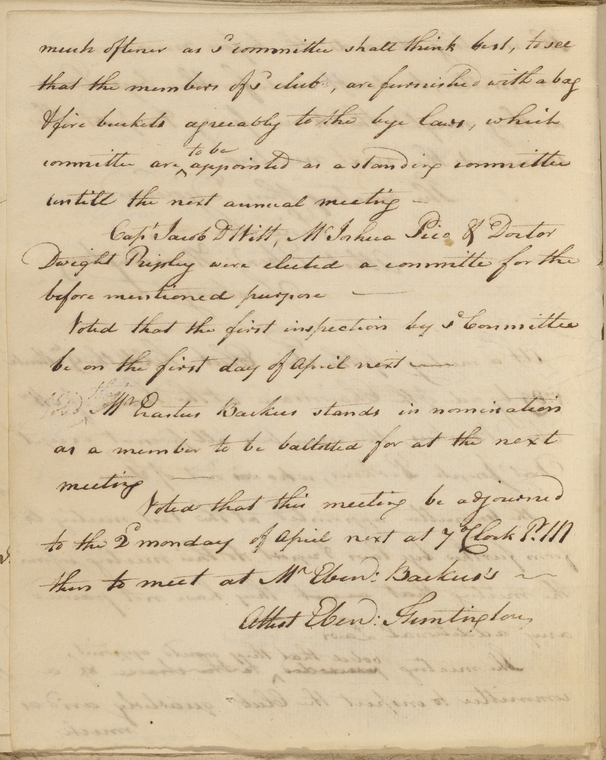 much oftener as sd committee shall think best, to see
that the members of sd club, are furnished with a bag
& fire buckets agreeably to the bye laws, which
committee are to be appointed as a standing committee
untill the next annual meeting —
Capt Jacob D Witt, Mr Joshua & Doctor
Dwight Ripley were elected a committee for the
before mentioned purpose —
Voted that the first inspection by sd Committee
be on the first day of April next —
Mr Erastus Backus stands in nomination
as a member to be ballotted for at the next
meeting
Voted that this meeting be adjourned
to the 2d monday of April next at 7 oClock P.M
then to meet at Mr Eben: Backus's —
Attest Eben: Huntington